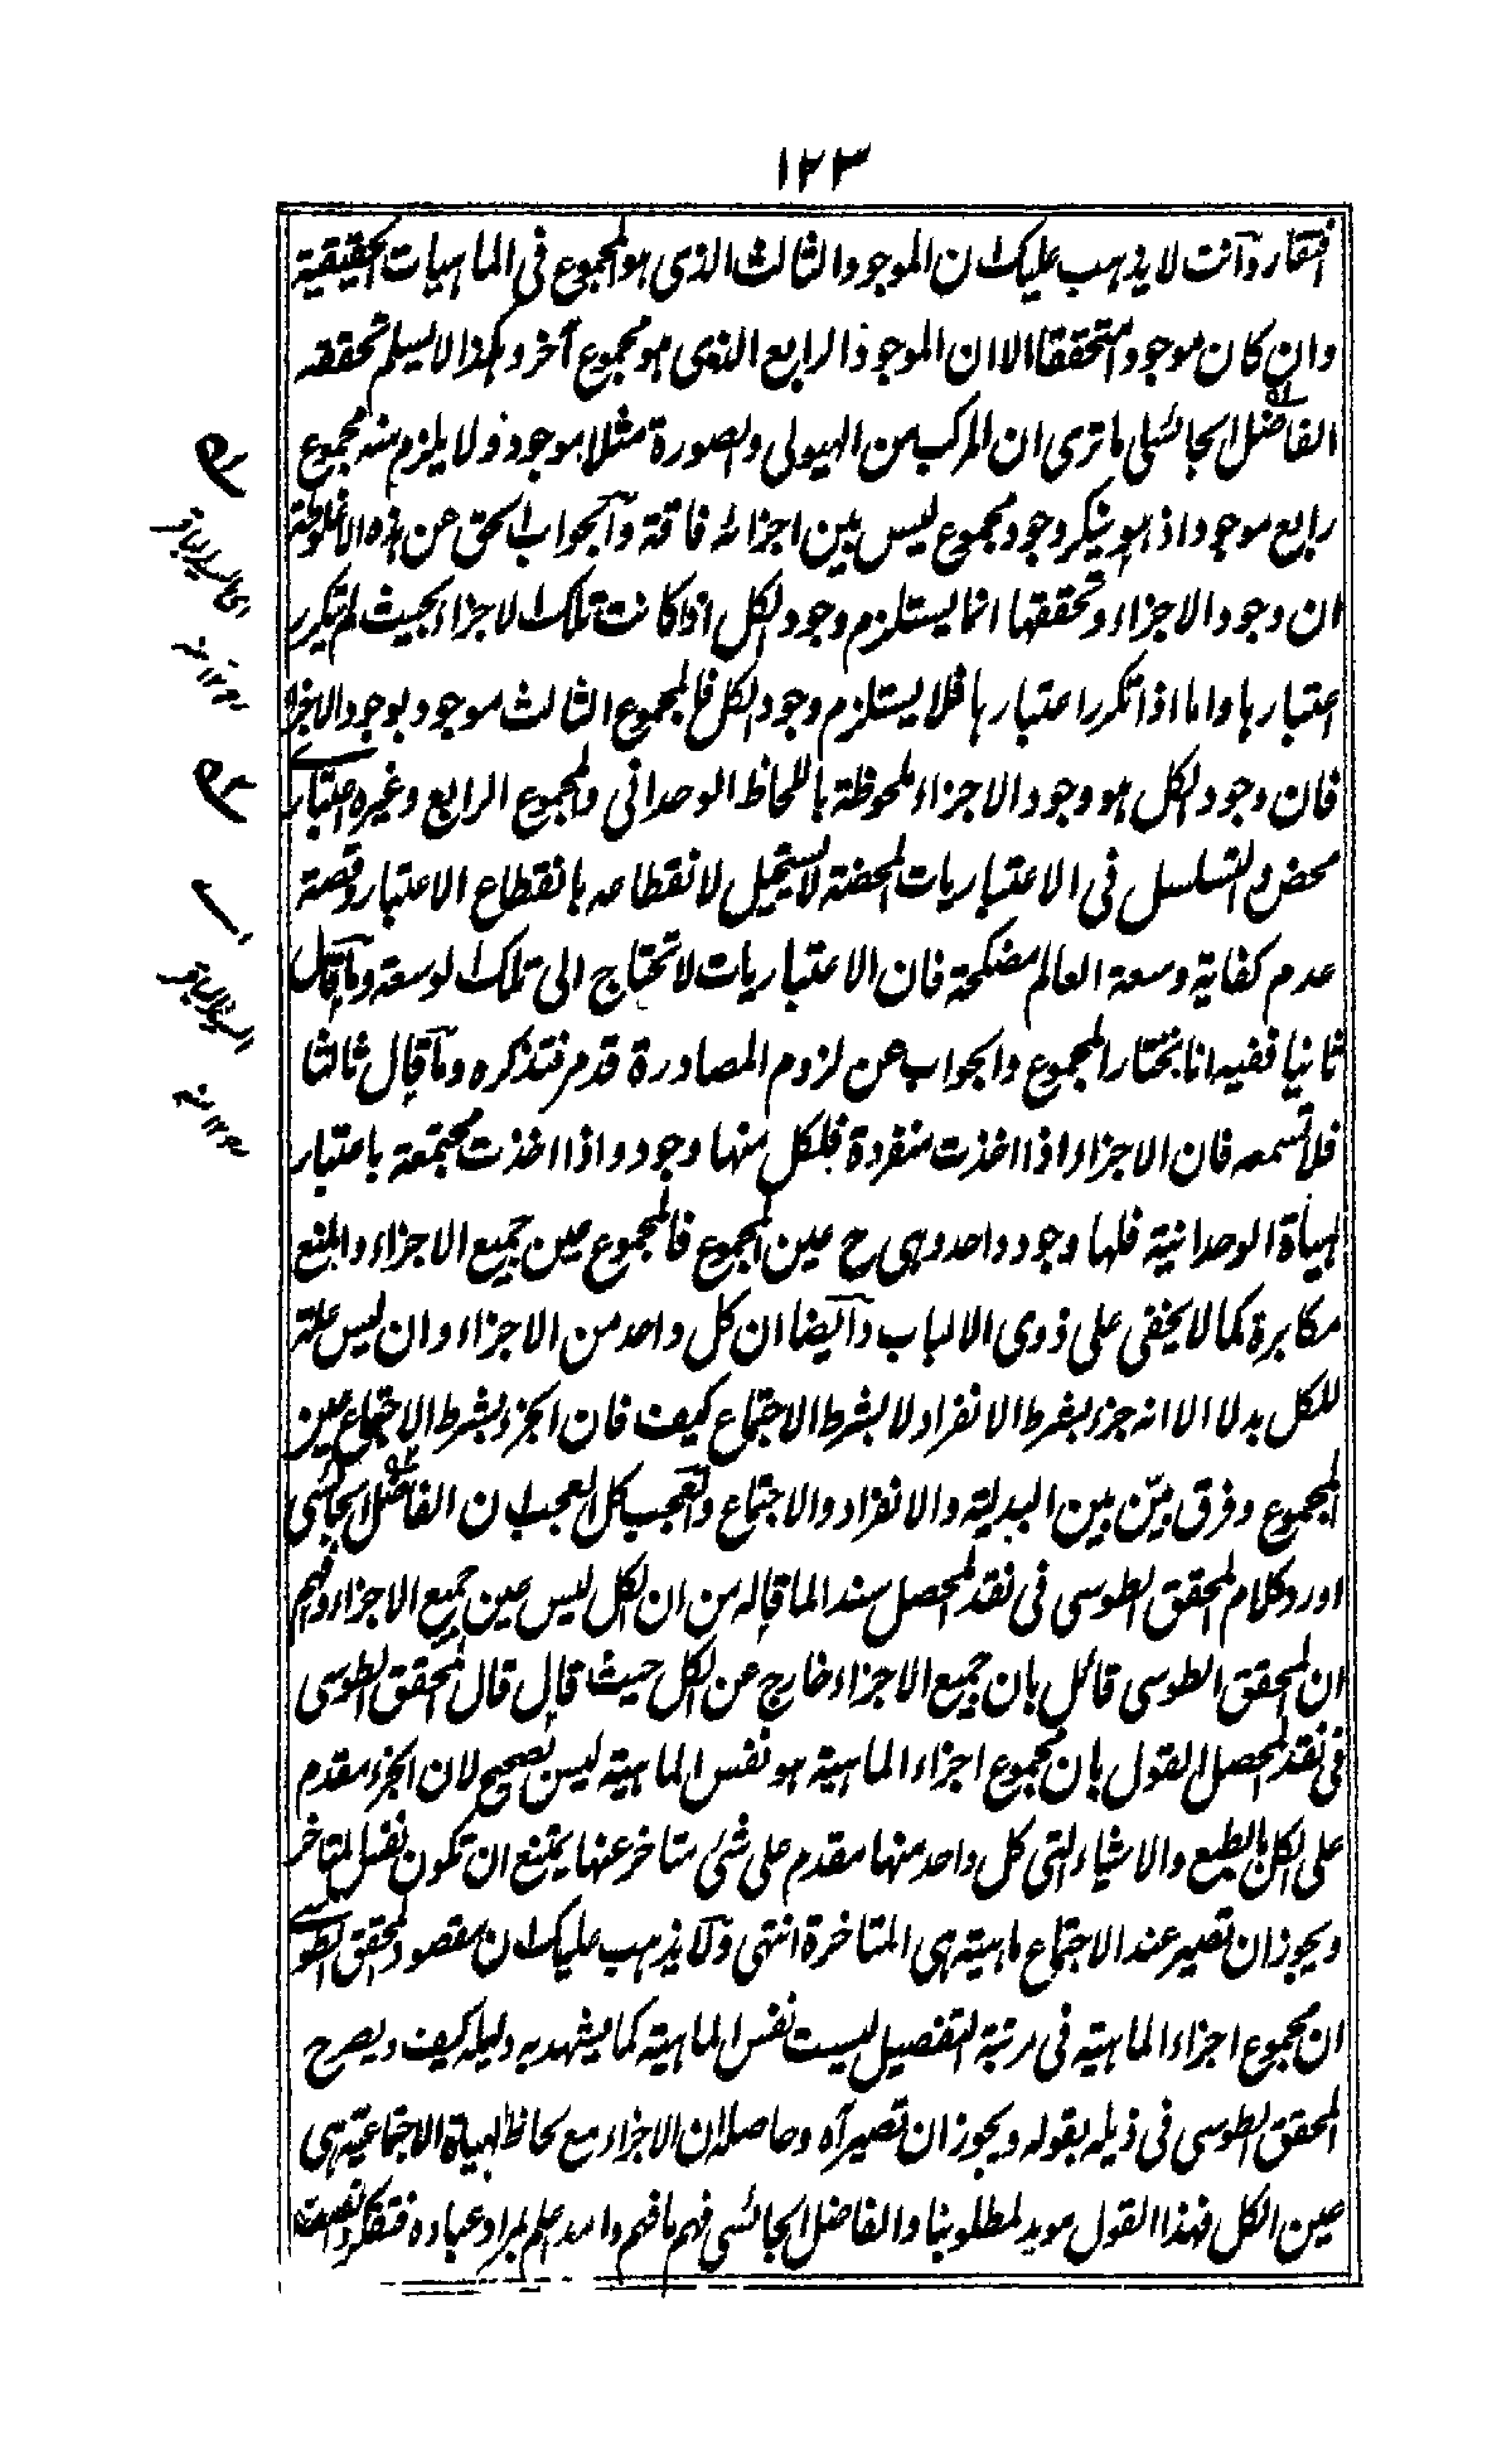 ١٢٣
افتقار وأنت لا يذهب عليك ان الموجود الثالث الذى هو المجموع فى الماهيات الحقيقية
وان كان موجودا متحققا الا ان الموجود الرابع الذى هو مجموع آخر وهكذا لا يسلم تحققه
الفاضل الجائسى ما ترى ان المركب من الهيولى والصورة مثلا موجود ولا يلزم منه مجموع
رابع موجود اذ هو ينكر وجود مجموع ليس بين اجزائه فاقة والجواب الحق عن هذه الاغلوطة
ان وجود الاجزاء وتحققها انما يستلزم وجود الكل اذا كانت تلك الاجزاء بحيث لم يتكرر
اعتبارها واما اذا تكرر اعتبارها فلا يستلزم وجود الكل فالمجموع الثالث موجود بوجود الاجزاء
فان وجود الكل هو وجود الاجزاء ملحوظة باللحاظ الوحدانى والمجموع الرابع وغيره اعتبارى
محض والتسلسل فى الاعتباريات المحضة لا يستحيل لانقطاعه بانقطاع الاعتبار وقصة
عدم كفاية وسعة العالم مضحكة فان الاعتباريات لا تحتاج الى تلك الوسعة وما قال
ثانيا ففيه انا نختار المجموع والجواب عن لزوم المصادرة قد مر فتذكره وما قال ثالثا
فلا تسمعه فان الاجزاء اذا اخذت منفردة فلكل منها وجود واذا اخذت مجتمعة باعتبار
الهيأة الوحدانية فلها وجود واحد وهى ح عين المجموع فالمجموع عين جميع الاجزاء والمنع
مكابرة كما لا يخفى على ذوى الالباب وأيضا ان كل واحد من الاجزاء وان ليس علة
للكل بدلا الا انه جزء بشرط الانفراد لا بشرط الاجتماع كيف فان الجزء بشرط الاجتماع عين
المجموع وفرق بيّن بين البدلية والانفراد والاجتماع والعجب كل العجب ان الفاضل الجائسى
اورد كلام المحقق الطوسى فى نقد المحصل سندا لما قاله من ان الكل ليس عين جميع الاجزاء وفهم
ان المحقق الطوسى قائل بان جميع الاجزاء خارج عن الكل حيث قال قال المحقق الطوسى
فى نقد المحصل القول بان مجموع اجزاء الماهية هو نفس الماهية ليس بصحيح لان الجزء مقدم
على الكل بالطبع والاشياء التى كل واحد منها مقدم على شئ متاخر عنها يمتنع ان تكون نفس المتاخر
ويجوز ان تصير عند الاجتماع ماهية هى المتاخرة انتهى ولا يذهب عليك ان مقصود المحقق الطوسى
ان مجموع اجزاء الماهية فى مرتبة التفصيل ليست نفس الماهية كما يشهد به دليله كيف ويصرح
المحقق الطوسى فى ذيله بقوله ويجوز ان تصير آه وحاصله ان الاجزاء مع لحاظ الهيأة الاجتماعية هى
عين الكل فهذا القول مويد لمطلوبنا والفاضل الجائسى فهم ما فهم والله اعلم بمراد عباده فتفكر